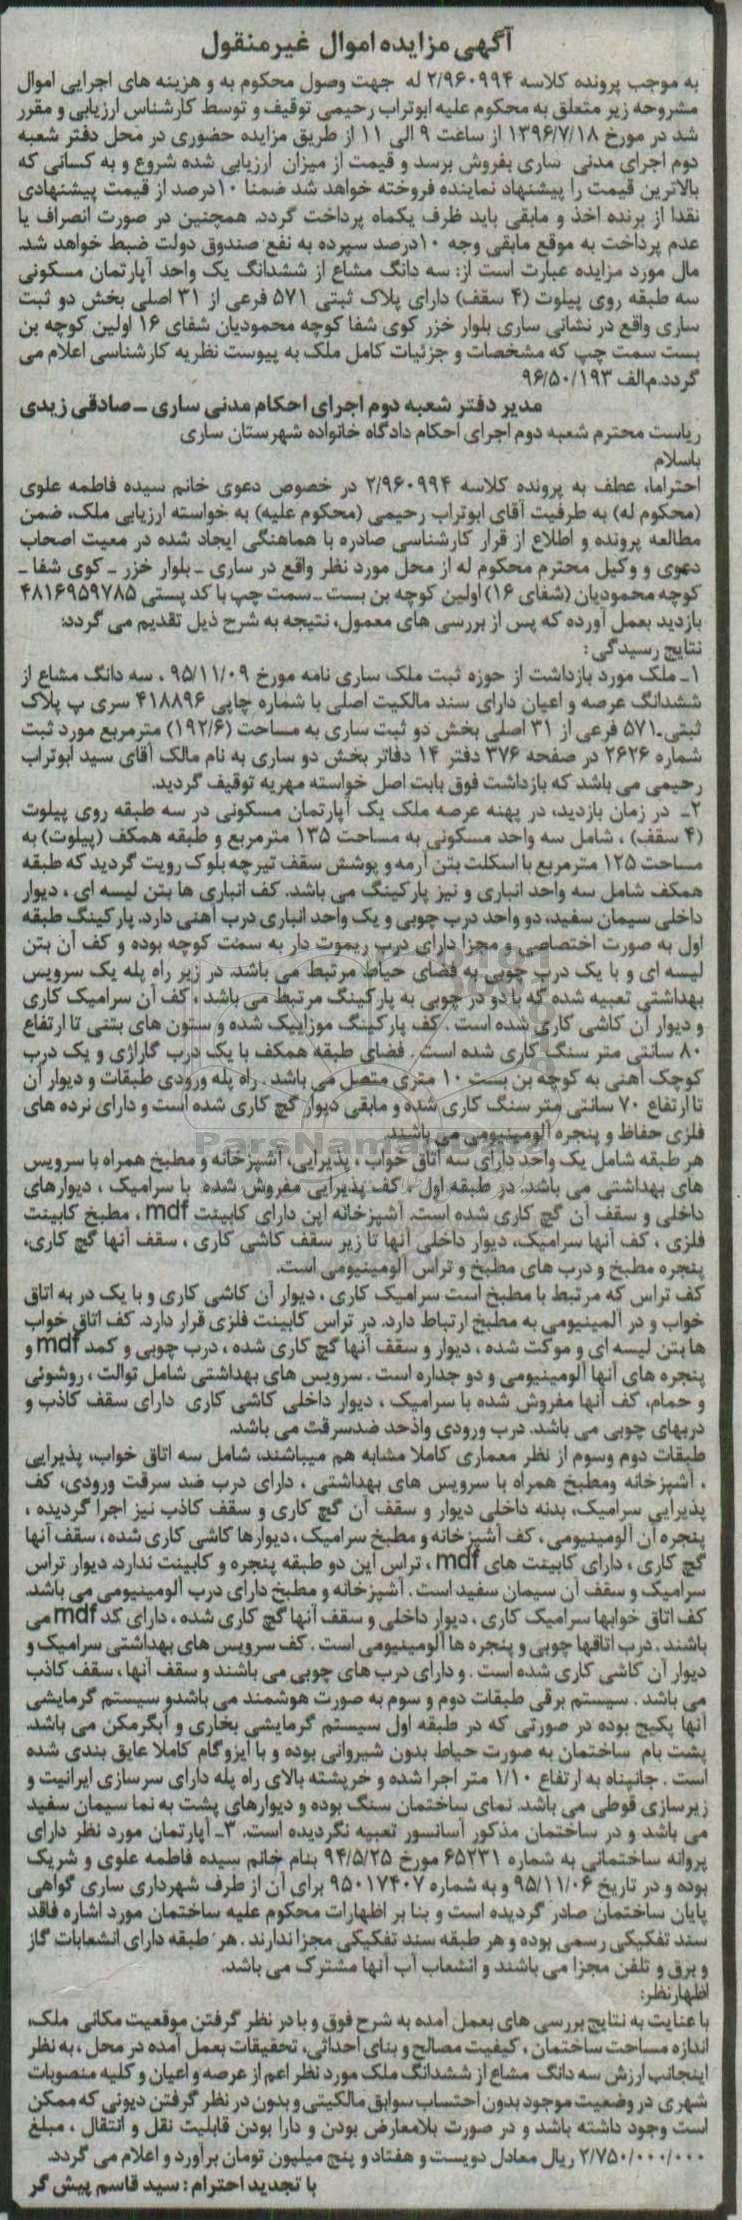 آگهی مزایده اموال غیرمنقول
به موجب پرونده کلاسه ۲/۹۶۰۹۹۴ له جهت وصول محکوم به و هزینه های اجرایی اموال
مشروحه زیر متعلق به محکوم علیه ابوتراب رحیمی توقیف و توسط کارشناس ارزیابی و مقرر
شد در مورخ ۱۳۹۶/۷/۱۸ از ساعت ۹ الی ۱۱ از طریق مزایده حضوری در محل دفتر شعبه
دوم اجرای مدنی ساری بفروش برسد و قیمت از میزان ارزیابی شده شروع و به کسانی که
بالاترین قیمت را پیشنهاد نماینده فروخته خواهد شد ضمنا ۱۰درصد از قیمت پیشنهادی
نقدا از برنده اخذ و مابقی باید ظرف یکماه پرداخت گردد. همچنین در صورت انصراف یا
عدم پرداخت به موقع مابقی وجه ۱۰درصد سپرده به نفع صندوق دولت ضبط خواهد شد.
مال مورد مزایده عبارت است از: سه دانگ مشاع از ششدانگ یک واحد آپارتمان مسکونی
سه طبقه روی پیلوت (۴ سقف) دارای پلاک ثبتی ۵۷۱ فرعی از ۳۱ اصلی بخش دو ثبت
ساری واقع در نشانی ساری بلوار خزر کوی شفا کوچه محمودیان شفای ۱۶ اولین کوچه بن
بست سمت چپ که مشخصات و جزئیات کامل ملک به پیوست نظریه کارشناسی اعلام می
گردد.م‌الف ۹۶/۵۰/۱۹۳
مدیر دفتر شعبه دوم اجرای احکام مدنی ساری ـ صادقی زیدی
ریاست محترم شعبه دوم اجرای احکام دادگاه خانواده شهرستان ساری
باسلام
احتراما، عطف به پرونده کلاسه ۲/۹۶۰۹۹۴ در خصوص دعوی خانم سیده فاطمه علوی
(محکوم له) به طرفیت آقای ابوتراب رحیمی (محکوم علیه) به خواسته ارزیابی ملک، ضمن
مطالعه پرونده و اطلاع از قرار کارشناسی صادره با هماهنگی ایجاد شده در معیت اصحاب
دعوی و وکیل محترم محکوم له از محل مورد نظر واقع در ساری ـ بلوار خزر ـ کوی شفا ـ
کوچه محمودیان (شفای ۱۶) اولین کوچه بن بست ـ سمت چپ با کد پستی ۴۸۱۶۹۵۹۷۸۵
بازدید بعمل آورده که پس از بررسی های معمول، نتیجه به شرح ذیل تقدیم می گردد:
نتایج رسیدگی:
۱ـ ملک مورد بازداشت از حوزه ثبت ملک ساری نامه مورخ ۹۵/۱۱/۰۹ ، سه دانگ مشاع از
ششدانگ عرصه و اعیان دارای سند مالکیت اصلی با شماره چاپی ۴۱۸۸۹۶ سری پ پلاک
ثبتی ۵۷۱ـ فرعی از ۳۱ اصلی بخش دو ثبت ساری به مساحت (۱۹۲/۶) مترمربع مورد ثبت
شماره ۲۶۲۶ در صفحه ۳۷۶ دفتر ۱۴ دفاتر بخش دو ساری به نام مالک آقای سید ابوتراب
رحیمی می باشد که بازداشت فوق بابت اصل خواسته مهریه توقیف گردید.
۲ـ در زمان بازدید، در پهنه عرصه ملک یک آپارتمان مسکونی در سه طبقه روی پیلوت
(۴ سقف) ، شامل سه واحد مسکونی به مساحت ۱۳۵ مترمربع و طبقه همکف (پیلوت) به
مساحت ۱۲۵ مترمربع با اسکلت بتن آرمه و پوشش سقف تیرچه بلوک رویت گردید که طبقه
همکف شامل سه واحد انباری و نیز پارکینگ می باشد. کف انباری ها بتن لیسه ای ، دیوار
داخلی سیمان سفید، دو واحد درب چوبی و یک واحد انباری درب آهنی دارد. پارکینگ طبقه
اول به صورت اختصاصی و مجزا دارای درب ریموت دار به سمت کوچه بوده و کف آن بتن
لیسه ای و با یک درب چوبی به فضای حیاط مرتبط می باشد. در زیر راه پله یک سرویس
بهداشتی تعبیه شده که با دو در چوبی به پارکینگ مرتبط می باشد ، کف آن سرامیک کاری
و دیوار آن کاشی کاری شده است . کف پارکینگ موزاییک شده و ستون های بتنی تا ارتفاع
۸۰ سانتی متر سنگ کاری شده است . فضای طبقه همکف با یک درب گاراژی و یک درب
کوچک آهنی به کوچه بن بست ۱۰ متری متصل می باشد . راه پله ورودی طبقات و دیوار آن
تا ارتفاع ۷۰ سانتی متر سنگ کاری شده و مابقی دیوار گچ کاری شده است و دارای نرده های
فلزی حفاظ و پنجره آلومینیومی می باشند.
ParsNamadData
هر طبقه شامل یک واحد دارای سه اتاق خواب ، پذیرایی، آشپزخانه و مطبخ همراه با سرویس
های بهداشتی می باشد. در طبقه اول ، کف پذیرایی مفروش شده با سرامیک ، دیوارهای
داخلی و سقف آن گچ کاری شده است. آشپزخانه این دارای کابینت mdf ، مطبخ کابینت
فلزی ، کف آنها سرامیک، دیوار داخلی آنها تا زیر سقف کاشی کاری ، سقف آنها گچ کاری،
پنجره مطبخ و درب های مطبخ و تراس آلومینیومی است.
کف تراس که مرتبط با مطبخ است سرامیک کاری ، دیوار آن کاشی کاری و با یک در به اتاق
خواب و در آلمینیومی به مطبخ ارتباط دارد. در تراس کابینت فلزی قرار دارد. کف اتاق خواب
ها بتن لیسه ای و موکت شده ، دیوار و سقف آنها گچ کاری شده ، درب چوبی و کمد mdf و
پنجره های آنها آلومینیومی و دو جداره است . سرویس های بهداشتی شامل توالت ، روشوئی
و حمام، کف آنها مفروش شده با سرامیک ، دیوار داخلی کاشی کاری دارای سقف کاذب و
دربهای چوبی می باشد. درب ورودی واحد ضدسرقت می باشد.
طبقات دوم وسوم از نظر معماری کاملا مشابه هم میباشند، شامل سه اتاق خواب، پذیرایی
، آشپزخانه ومطبخ همراه با سرویس های بهداشتی ، دارای درب ضد سرقت ورودی، کف
پذیرایی سرامیک، بدنه داخلی دیوار و سقف آن گچ کاری و سقف کاذب نیز اجرا گردیده ،
پنجره آن آلومینیومی ، کف آشپزخانه و مطبخ سرامیک ، دیوارها کاشی کاری شده ، سقف آنها
گچ کاری ، دارای کابینت های mdf ، تراس این دو طبقه پنجره و کابینت ندارد. دیوار تراس
سرامیک و سقف آن سیمان سفید است . آشپزخانه و مطبخ دارای درب آلومینیومی می باشد.
کف اتاق خوابها سرامیک کاری ، دیوار داخلی و سقف آنها گچ کاری شده ، دارای کد mdf می
باشند . درب اتاقها چوبی و پنجره ها آلومینیومی است . کف سرویس های بهداشتی سرامیک و
دیوار آن کاشی کاری شده است . و دارای درب های چوبی می باشند و سقف آنها، سقف کاذب
می باشد . سیستم برقی طبقات دوم و سوم به صورت هوشمند می باشدو سیستم گرمایشی
آنها پکیج بوده در صورتی که در طبقه اول سیستم گرمایشی بخاری و آبگرمکن می باشد.
پشت بام ساختمان به صورت حیاط بدون شیروانی بوده و با ایزوگام کاملا عایق بندی شده
است . جانپناه به ارتفاع ۱/۱۰ متر اجرا شده و خرپشته بالای راه پله دارای سرسازی ایرانیت و
زیرسازی قوطی می باشد. نمای ساختمان سنگ بوده و دیوارهای پشت به نما سیمان سفید
می باشد و در ساختمان مذکور آسانسور تعبیه نگردیده است. ۳ـ آپارتمان مورد نظر دارای
پروانه ساختمانی به شماره ۶۵۲۳۱ مورخ ۹۴/۵/۲۵ بنام خانم سیده فاطمه علوی و شریک
بوده و در تاریخ ۹۵/۱۱/۰۶ و به شماره ۹۵۰۱۷۴۰۷ برای آن از طرف شهرداری ساری گواهی
پایان ساختمان صادر گردیده است و بنا بر اظهارات محکوم علیه ساختمان مورد اشاره فاقد
سند تفکیکی رسمی بوده و هر طبقه سند تفکیکی مجزا ندارند . هر طبقه دارای انشعابات گاز
و برق و تلفن مجزا می باشند و انشعاب آب آنها مشترک می باشد.
اظهارنظر:
با عنایت به نتایج بررسی های بعمل آمده به شرح فوق و با در نظر گرفتن موقعیت مکانی ملک،
اندازه مساحت ساختمان ، کیفیت مصالح و بنای احداثی، تحقیقات بعمل آمده در محل ، به نظر
اینجانب ارزش سه دانگ مشاع از ششدانگ ملک مورد نظر اعم از عرصه و اعیان و کلیه منصوبات
شهری در وضعیت موجود بدون احتساب سوابق مالکیتی و بدون در نظر گرفتن دیونی که ممکن
است وجود داشته باشد و در صورت بلامعارض بودن و دارا بودن قابلیت نقل و انتقال ، مبلغ
۲/۷۵۰/۰۰۰/۰۰۰ ریال معادل دویست و هفتاد و پنج میلیون تومان برآورد و اعلام می گردد.
با تجدید احترام : سید قاسم پیش گر